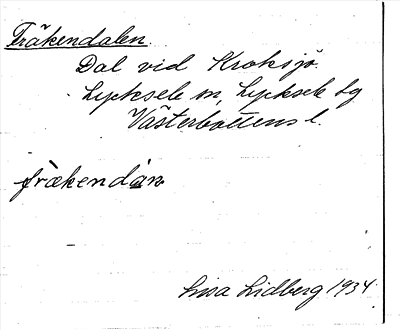 Fräkendalen.
Dal vid Kroksjö
Lycksele sn, Lycksele sg
Västerbottens l.
frækendàn
Lisa Lidberg 1934